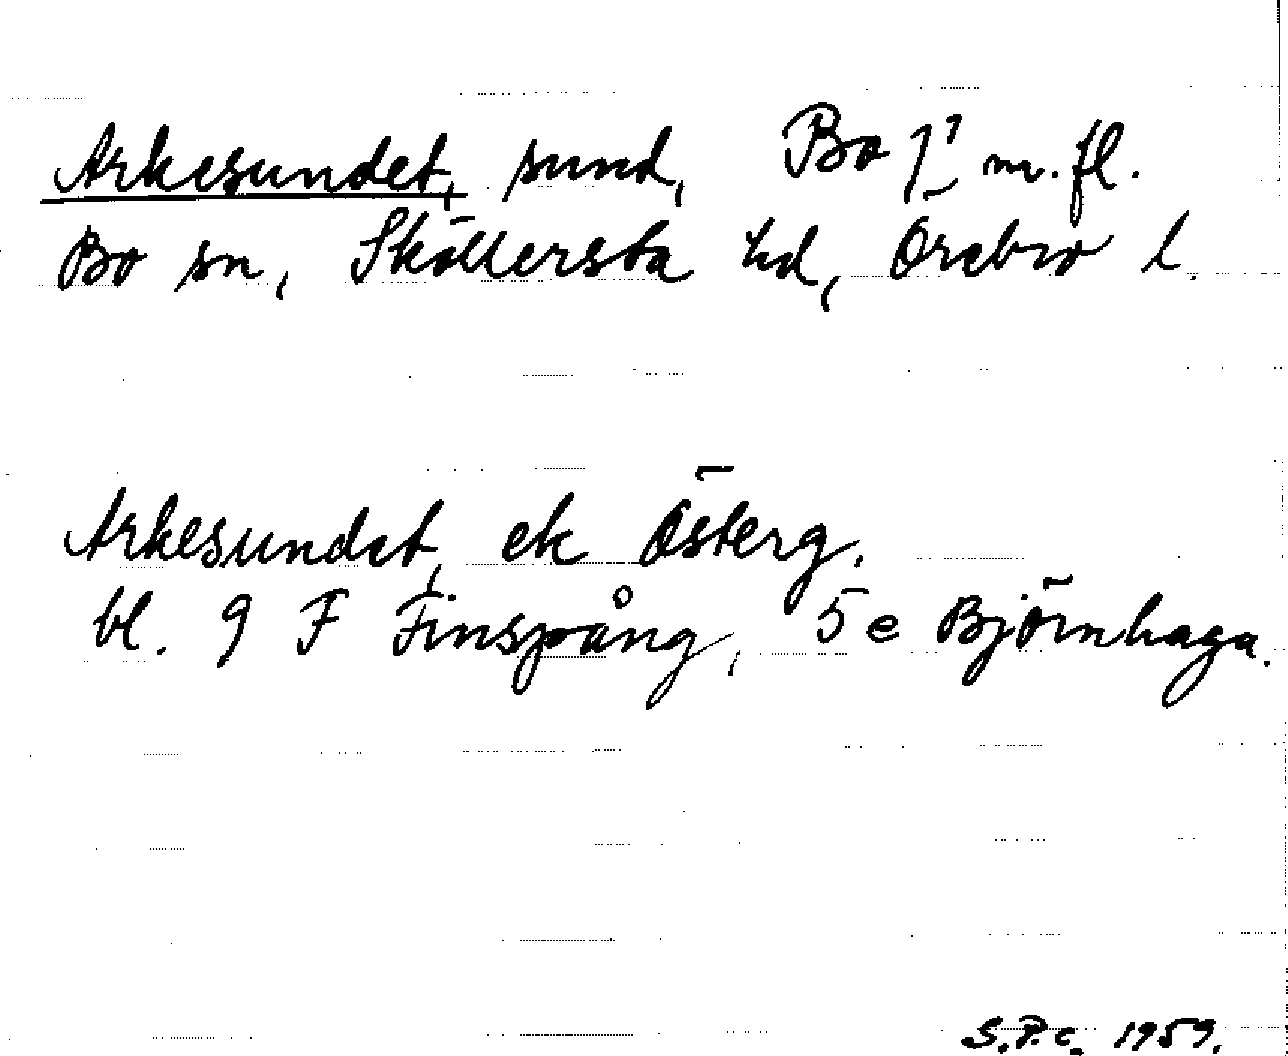 Arkesundet, sund, Bo 1:1 m.fl.
Bo sn, Sköllersta hd, Örebro l.
Arkesundet, ek Österg.
bl. 9 F Finspång, 5 e Björnhaga.
S.P.c. 1959.